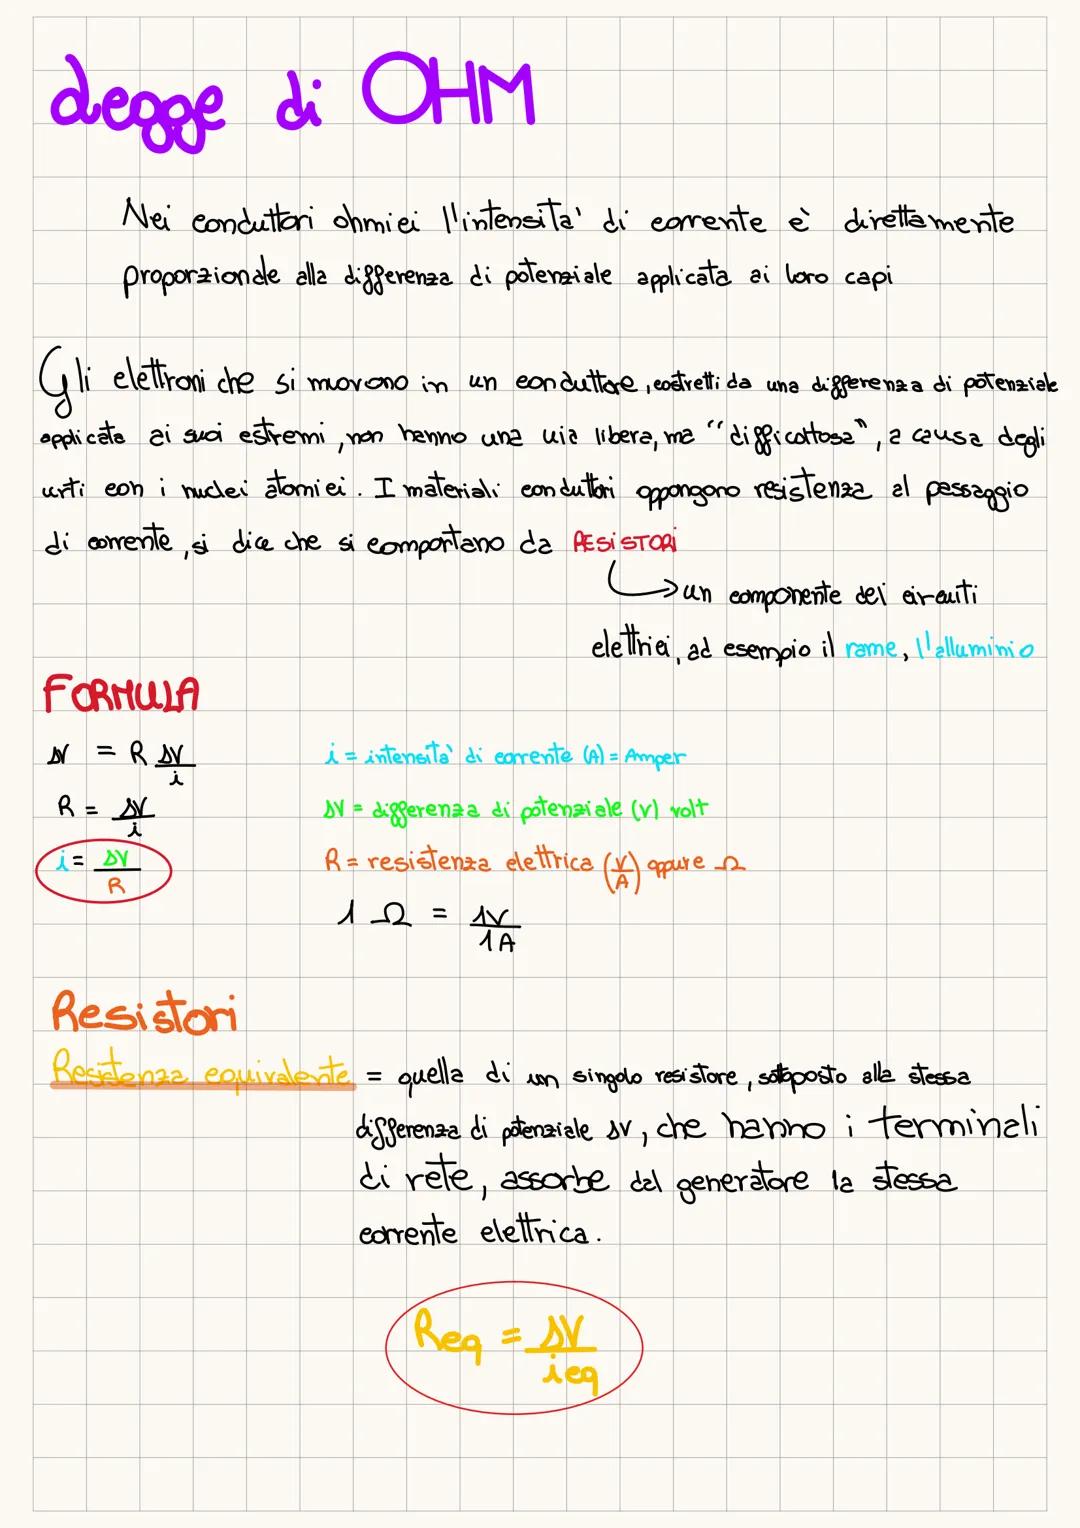 Legge di OHM
Nei conduttori ohmici l'intensita' di corrente è direttamente
proporzionale alla differenza di potenziale applicata ai loro capi
Gli elettroni che si muovono in un conduttore, costretti da una differenza di potenziale
applicata ai suoi estremi, non hanno una via libera, ma "difficoltosa", a causa degli
urti con i nuclei atomici. I materiali conduttori oppongono resistenza al passaggio
di corrente, si dice che si comportano da RESISTORI
→ un componente dei circuiti
elettrici, ad esempio il rame, l'alluminio
FORMULA
ΔV = R ΔV/i
i = intensita' di corrente (A) = Amper
R = ΔV/i
ΔV = differenza di potenziale (V) volt
i = ΔV/R
R = resistenza elettrica (V/A) oppure Ω
1 Ω = 1V/1A
Resistori
Resistenza equivalente = quella di un singolo resistore, sottoposto alla stessa
differenza di potenziale ΔV, che hanno i terminali
di rete, assorbe dal generatore la stessa
corrente elettrica.
Req = ΔV/ieq